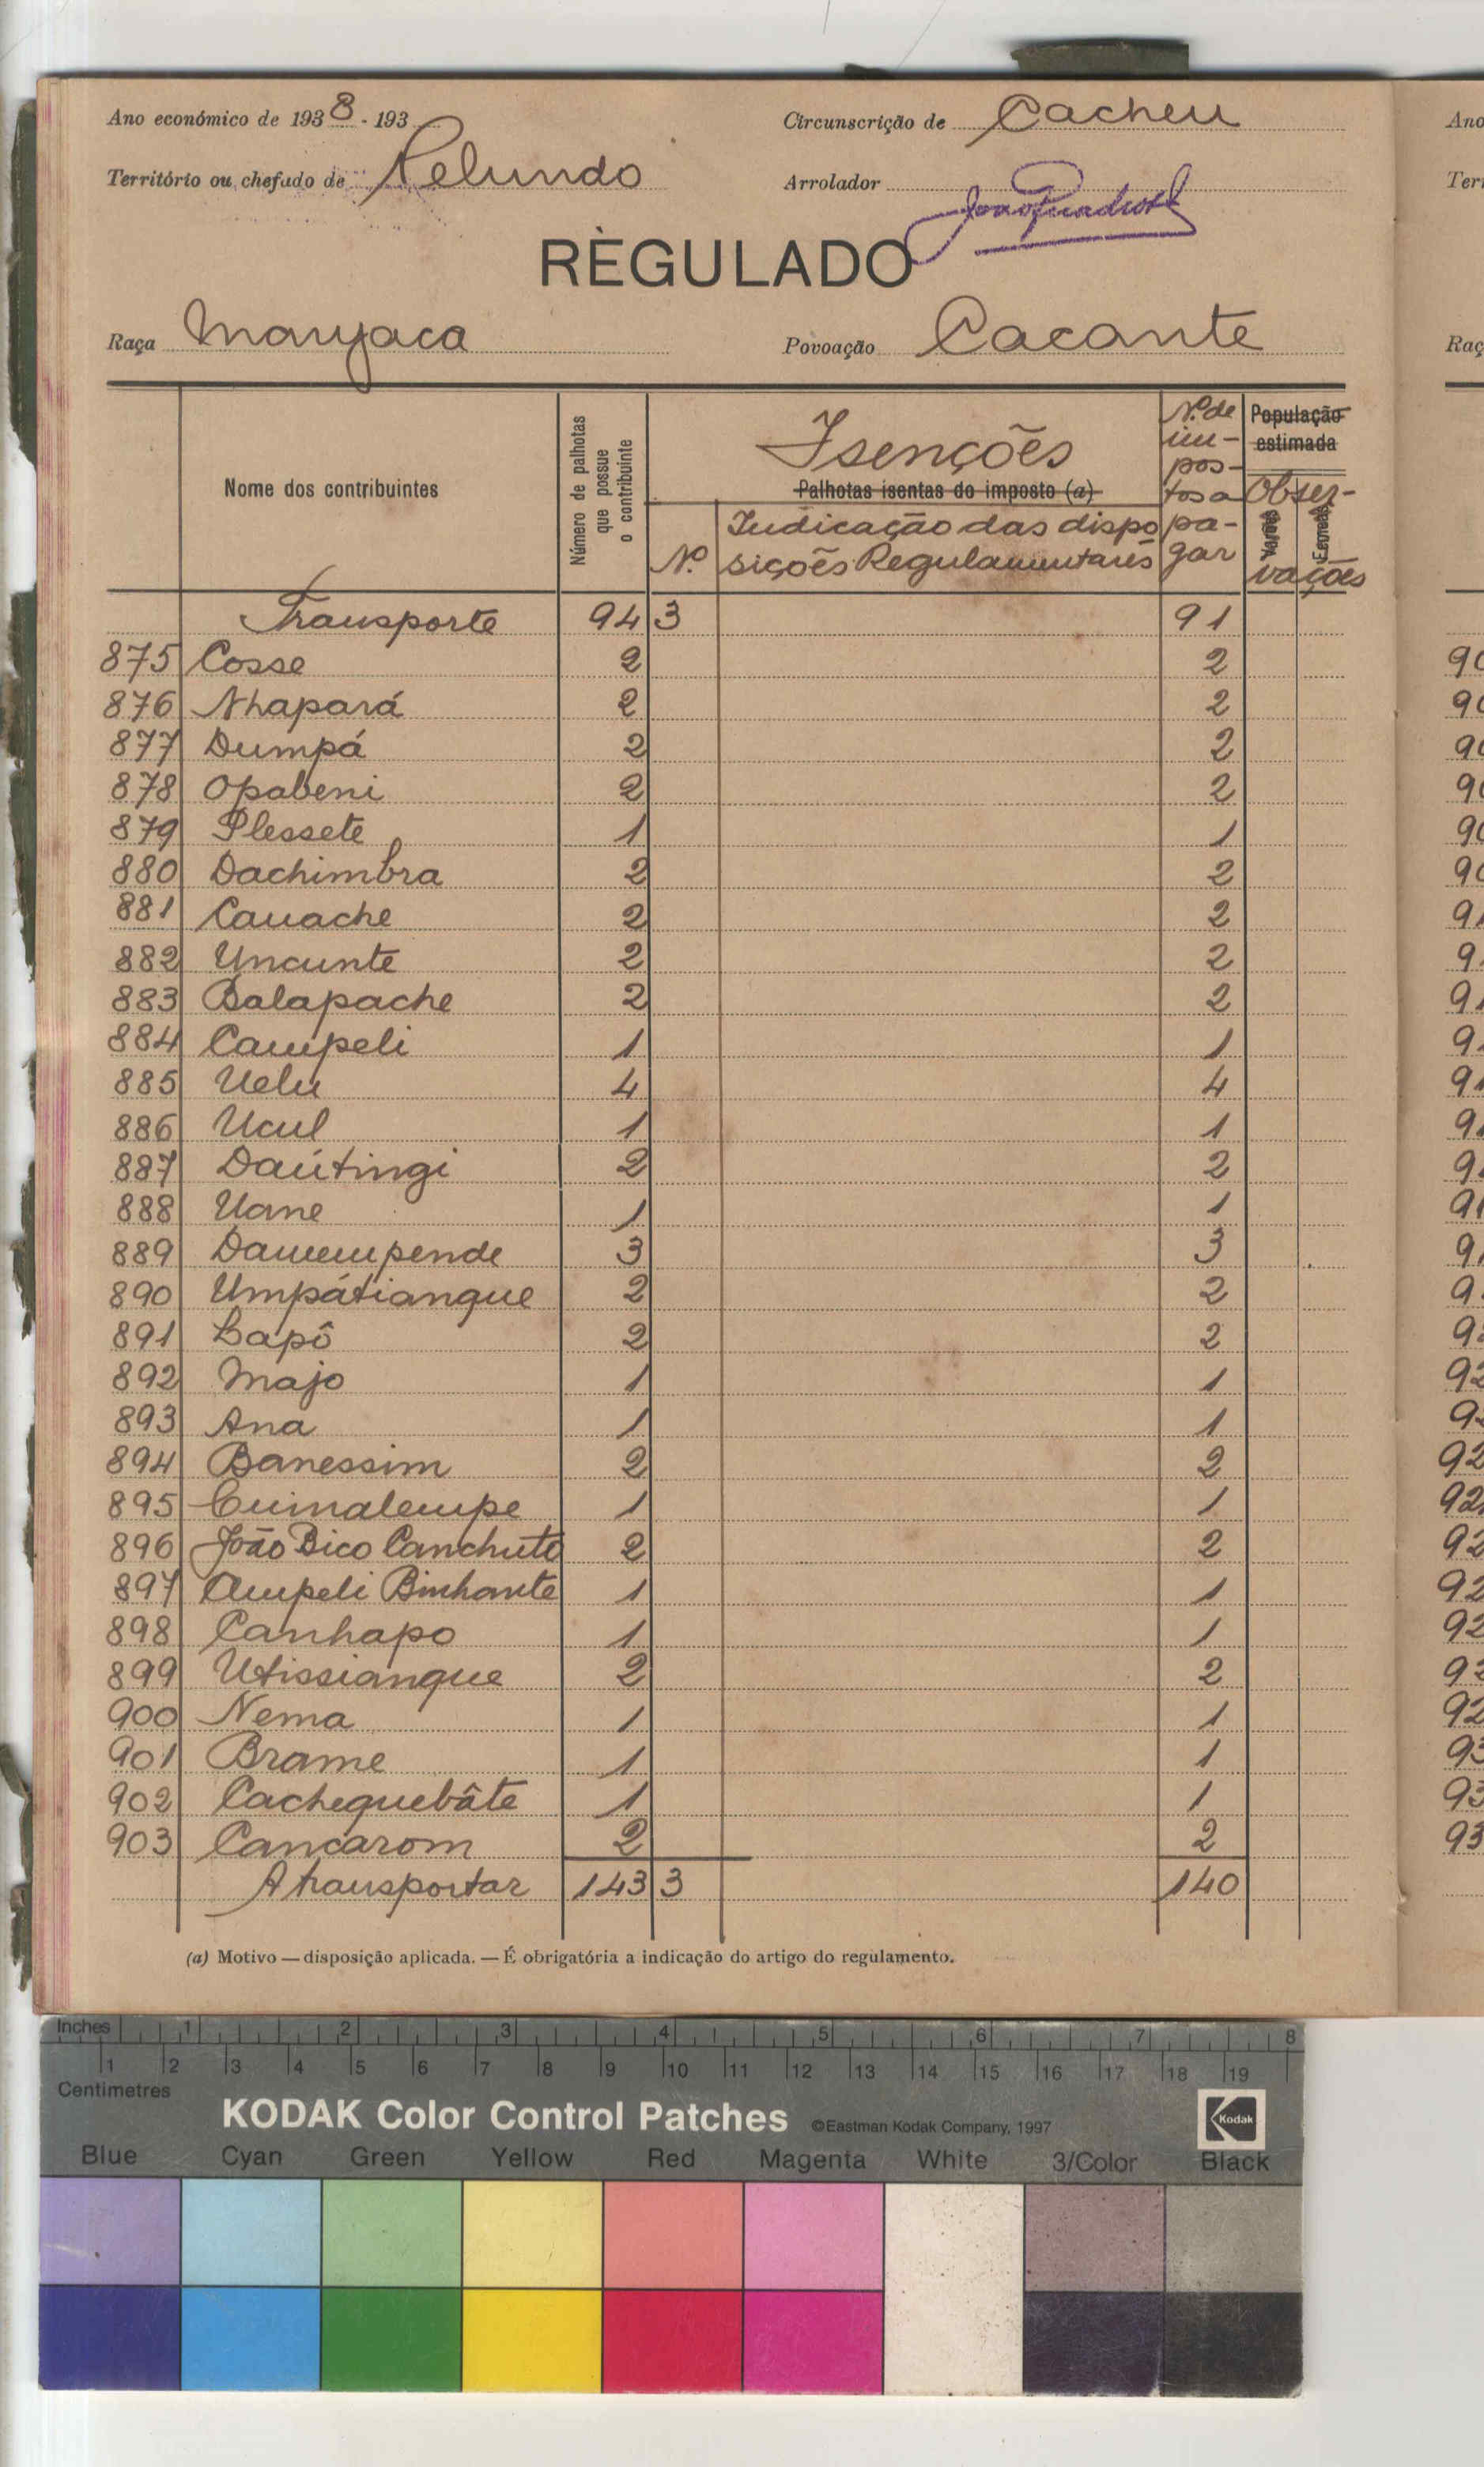 Ano económico de 1938 - 193
Circunscrição de Cacheu
Território ou chefado de Pelundo
Arrolador
REGULADO
Raça Manjaca
Povoação Cacante
Nome dos contribuintes
Número de palhotas que possue o contribuinte
Isenções
Palhotas isentas do imposto (a)
N.º
Indicação das disposições Regulamentares
N.º de impostos a pagar
População estimada
Observações
Varões
Femeas
Transporte 94 3 91
875 Cosse 2 2
876 Nhapará 2 2
877 Dumpá 2 2
878 Opabeni 2 2
879 Plessete 1 1
880 Dachimbra 2 2
881 Cauache 2 2
882 Uncunte 2 2
883 Balapache 2 2
884 Campeli 1 1
885 Uelu 4 4
886 Ucul 1 1
887 Daútingi 2 2
888 Uane 1 1
889 Damempende 3 3
890 Umpátiangue 2 2
891 Lapô 2 2
892 Majo 1 1
893 Ana 1 1
894 Banessim 2 2
895 Cuinalempe 1 1
896 João Bico Canchuto 2 2
897 Ampeli Binhante 1 1
898 Canhapo 1 1
899 Utissiangue 2 2
900 Nema 1 1
901 Brame 1 1
902 Cachequebâte 1 1
903 Cancarom 2 2
A transportar 143 3 140
(a) Motivo — disposição aplicada. — É obrigatória a indicação do artigo do regulamento.
Inches 1 2 3 4 5 6 7 8
1 2 3 4 5 6 7 8 9 10 11 12 13 14 15 16 17 18 19
Centimetres
KODAK Color Control Patches ©Eastman Kodak Company, 1997 Kodak
Blue Cyan Green Yellow Red Magenta White 3/Color Black